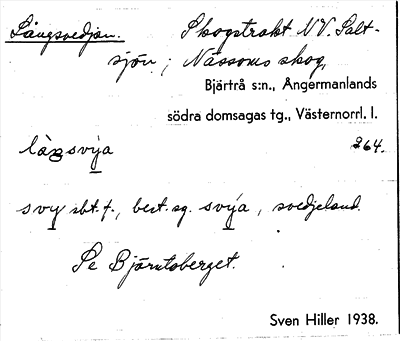 Långsvedjan. Skogstrakt N.V. Salt-
sjön; Nässoms skog,
Bjärtrå s:n., Ångermanlands
södra domsagas tg., Västernorrl. l.
låŋsvy̱a 264.
svy̱ sbt. f., best. sg. svy̱a, svedjeland.
Se Björntoberget.
Sven Hiller 1938.